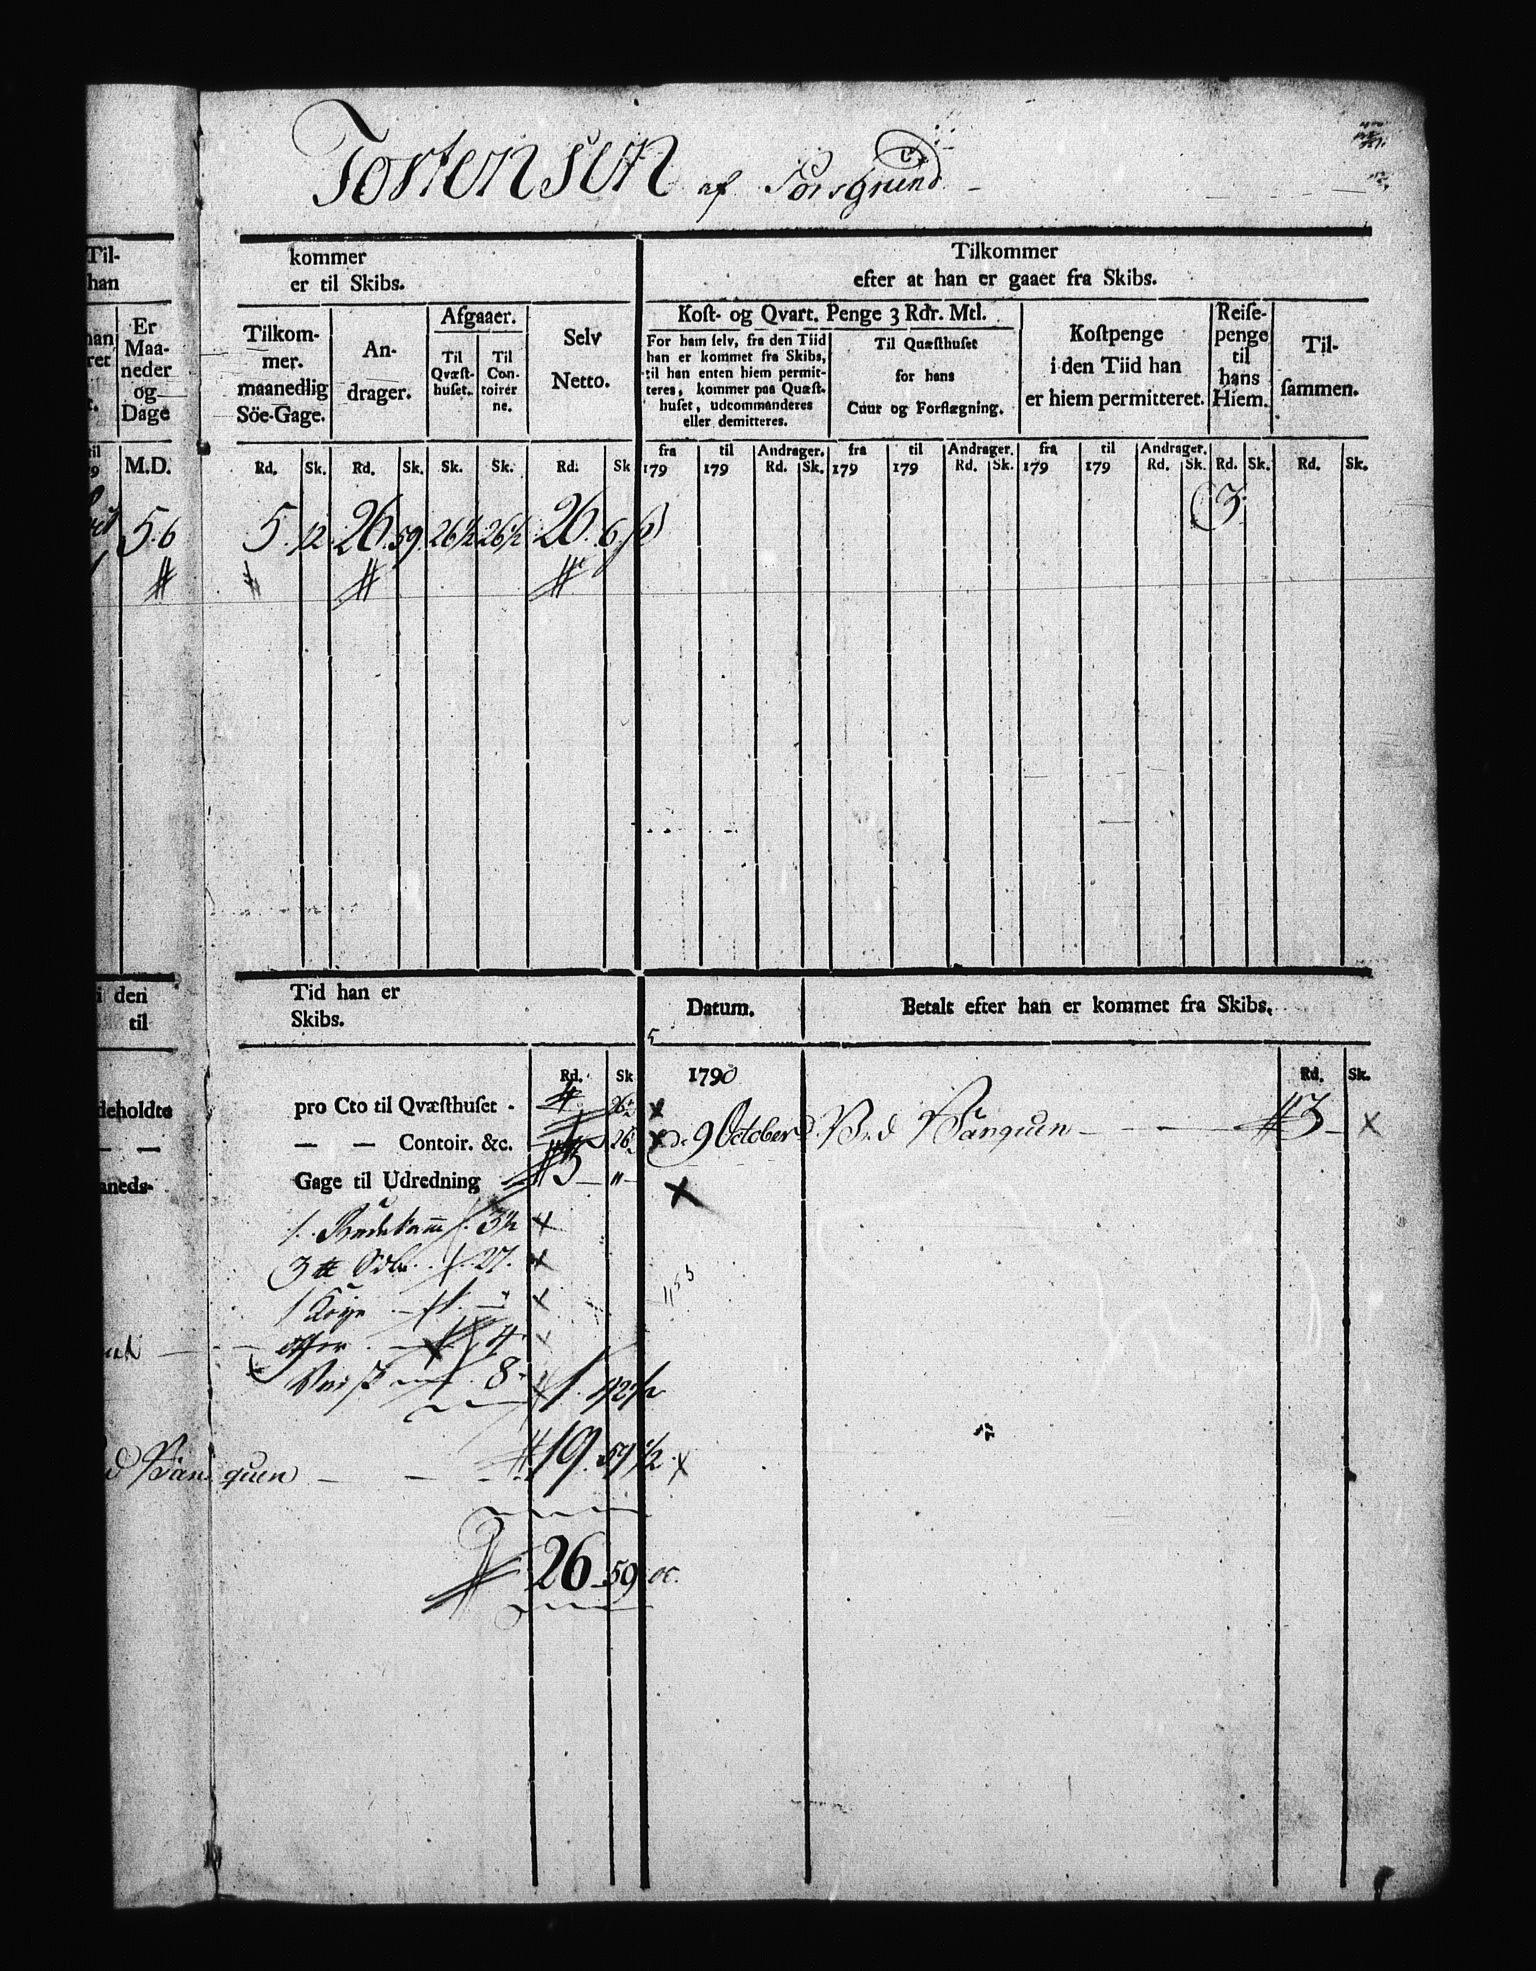 Tortensen af Porsgrund
Til-
han
kommer
er til Skibs.
Tilkommer
efter at han er gaaet fra Skibs.
Er
Maa-
neder
og
Dage
Tilkom-
mer.
maanedlig
Söe-Gage.
An-
drager.
Afgaaer.
Til
Qvæst-
huset.
Til
Con-
toirer
ne.
Selv
Netto.
Kost- og Qvart. Penge 3 Rdr. Mtl.
For ham selv, fra den Tiid
han er kommet fra Skibs,
til han enten hiem permit-
teres, kommer paa Quæst-
huset, udcommanderes
eller demitteres.
Til Quæsthuset
for hans
Cuur og Forflægning.
Kostpenge
i den Tiid han
er hiem permitteret.
Reise-
penge
til
hans
Hiem.
Til-
sammen.
til
M.D.
Rd. Sk. Rd. Sk. Sk. Sk. Rd. Sk
fra til Andrager. fra til Andrager. fra til Andrager.
179 179 Rd. Sk. 179 179 Rd. Sk. 179 179 Rd. Sk. Rd. Sk. Rd. Sk.
5 6 5 12 26 59 26½ 26½ 26 6 3
i den
til
Tid han er
Skibs.
Datum.
Betalt efter han er kommet fra Skibs.
Rd. Sk 1790 Rd. Sk.
deholdte
pro Cto til Qvæsthuset - 26½
— — Contoir. &c. 26½
d. 9 October 3
aneds-
Gage til Udredning 3 "
1 3½
3 27
1
4
8 1 42½
19 59½
26 59